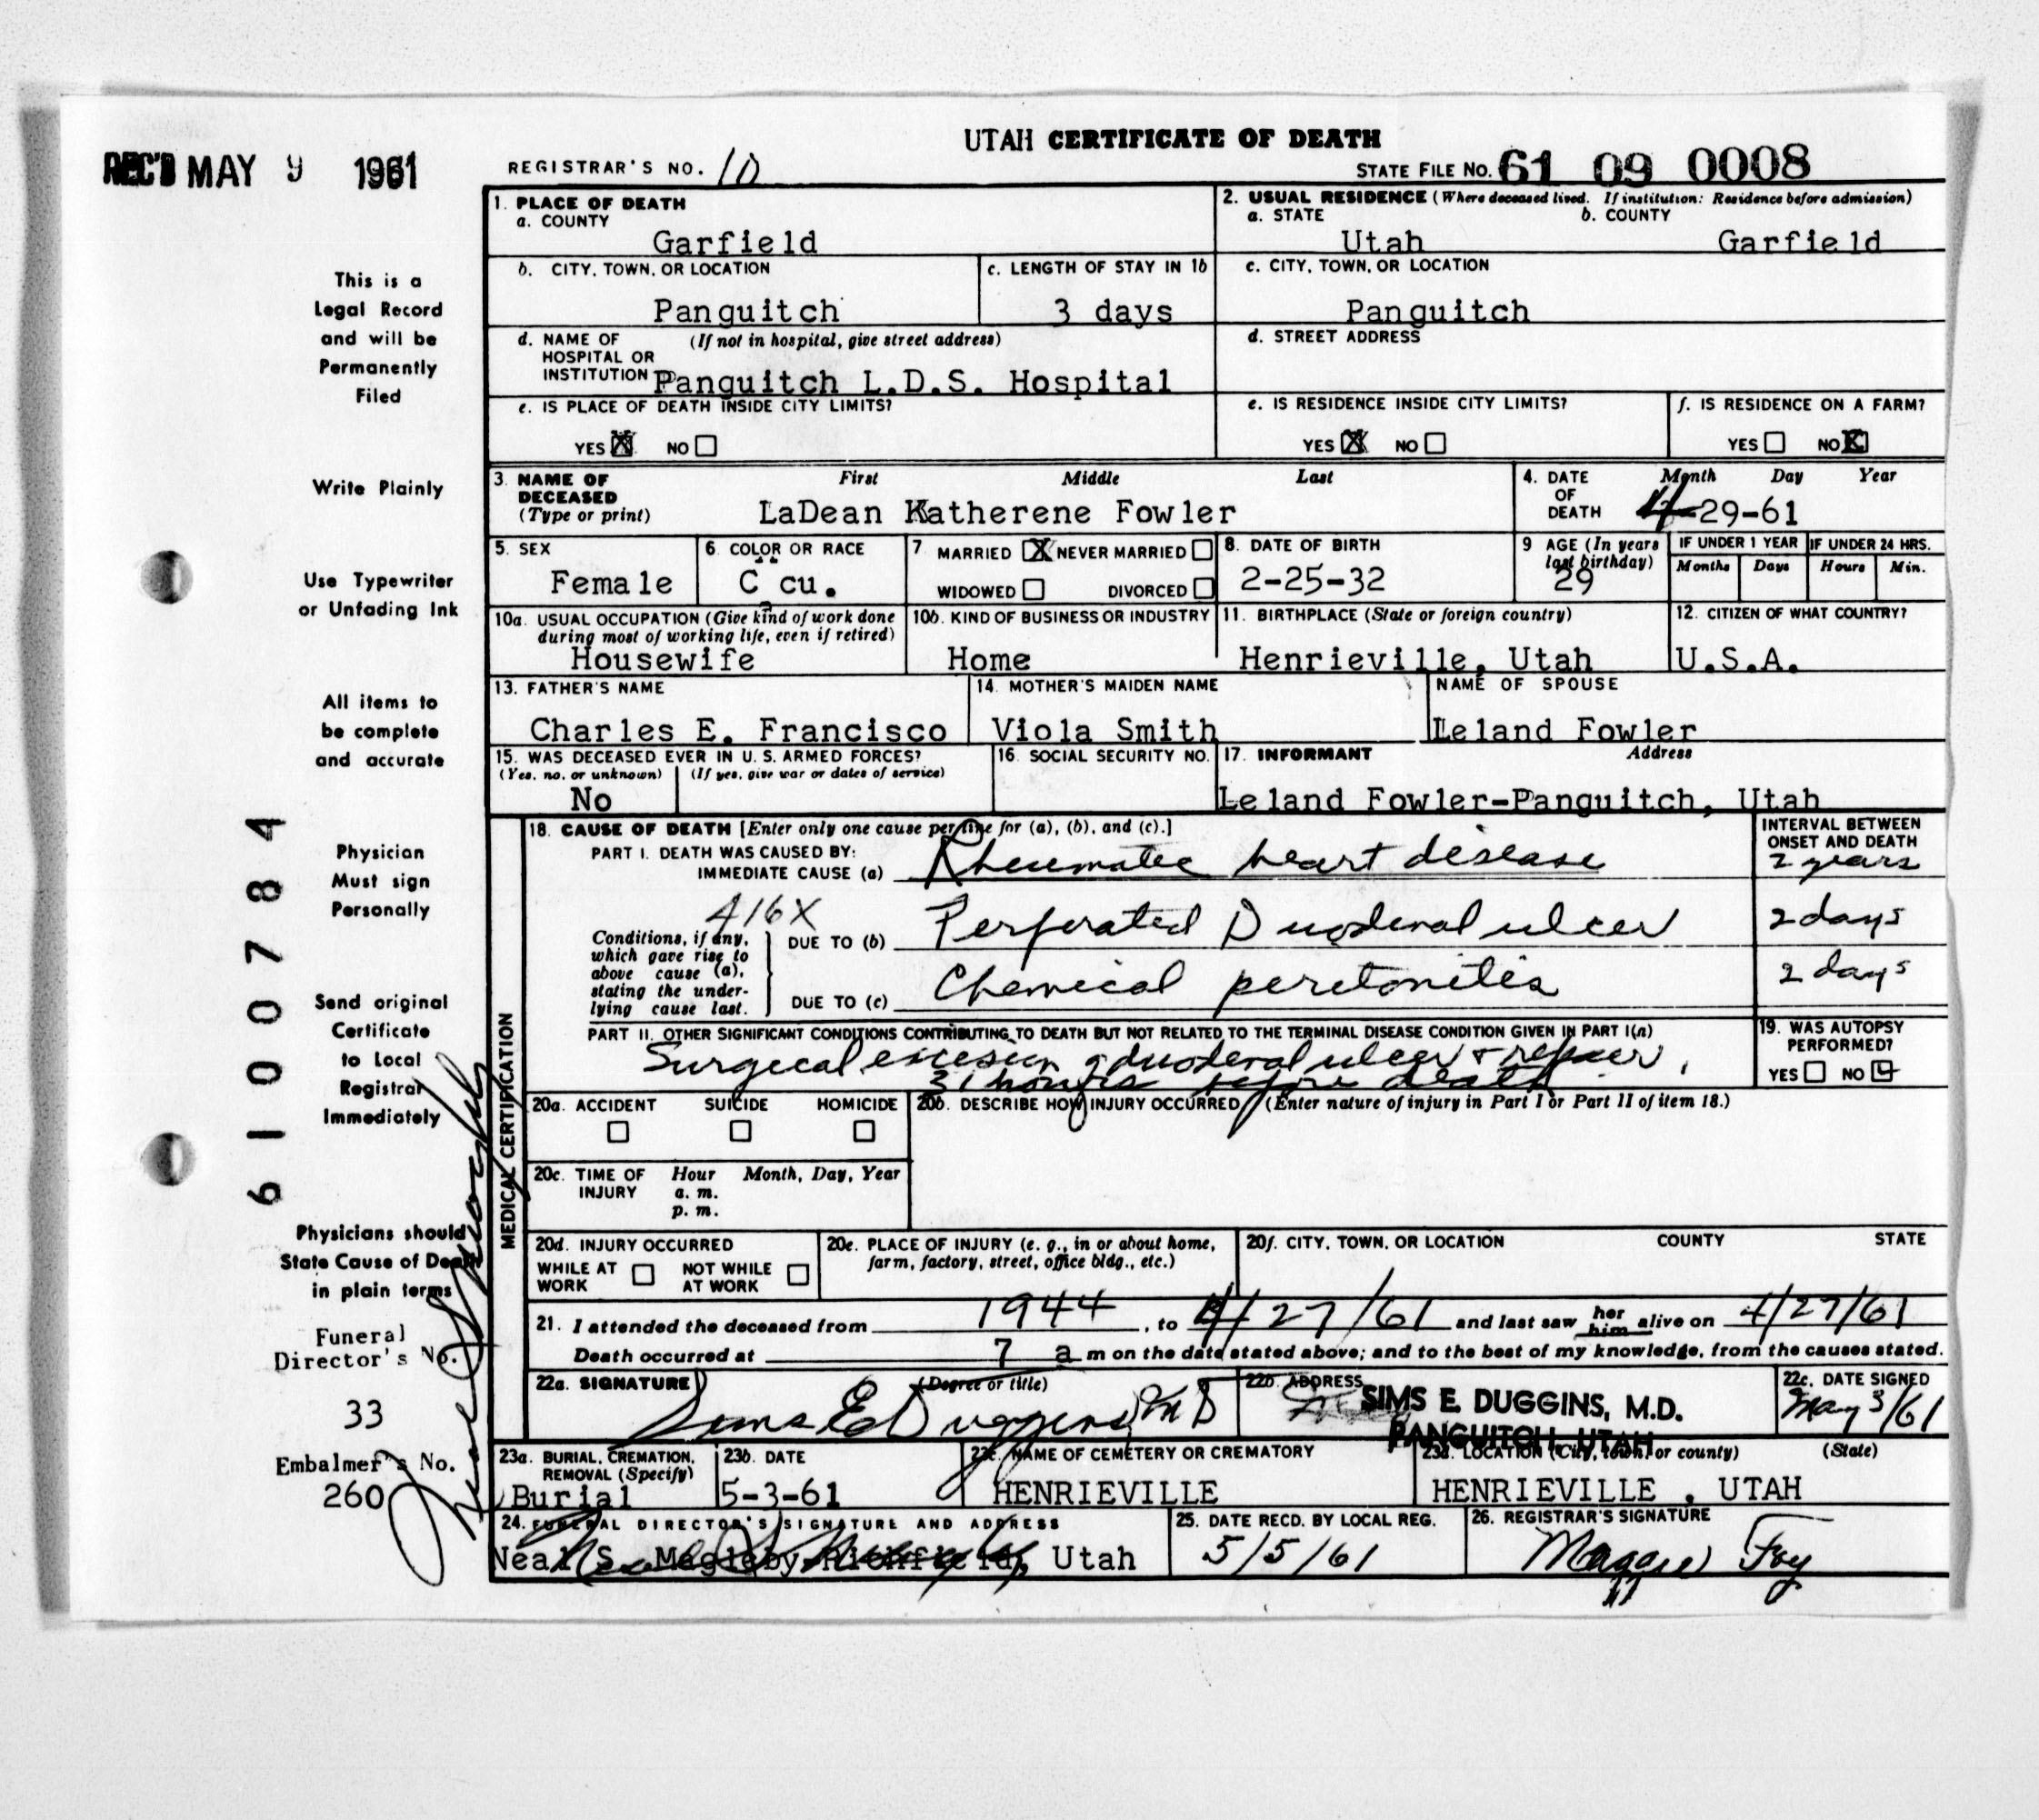 UTAH CERTIFICATE OF DEATH
REC'D MAY 9 1961
REGISTRAR'S NO. 10
STATE FILE NO. 61 09 0008
1. PLACE OF DEATH
a. COUNTY
Garfield
2. USUAL RESIDENCE (Where deceased lived. If institution: Residence before admission)
a. STATE b. COUNTY
Utah Garfield
b. CITY, TOWN, OR LOCATION
Panguitch
c. LENGTH OF STAY IN 1b
3 days
c. CITY, TOWN, OR LOCATION
Panguitch
d. NAME OF (If not in hospital, give street address)
HOSPITAL OR
INSTITUTION Panguitch L.D.S. Hospital
d. STREET ADDRESS
e. IS PLACE OF DEATH INSIDE CITY LIMITS?
YES X NO
e. IS RESIDENCE INSIDE CITY LIMITS?
YES X NO
f. IS RESIDENCE ON A FARM?
YES NO X
3. NAME OF DECEASED (Type or print)
First Middle Last
LaDean Katherene Fowler
4. DATE OF DEATH
Month Day Year
4-29-61
5. SEX
Female
6. COLOR OR RACE
C cu.
7 MARRIED X NEVER MARRIED
WIDOWED DIVORCED
8. DATE OF BIRTH
2-25-32
9 AGE (In years last birthday)
29
IF UNDER 1 YEAR
Months Days
IF UNDER 24 HRS.
Hours Min.
10a. USUAL OCCUPATION (Give kind of work done
during most of working life, even if retired)
Housewife
10b. KIND OF BUSINESS OR INDUSTRY
Home
11. BIRTHPLACE (State or foreign country)
Henrieville, Utah
12. CITIZEN OF WHAT COUNTRY?
U.S.A.
13. FATHER'S NAME
Charles E. Francisco
14. MOTHER'S MAIDEN NAME
Viola Smith
NAME OF SPOUSE
Leland Fowler
15. WAS DECEASED EVER IN U. S. ARMED FORCES?
(Yes, no, or unknown) (If yes, give war or dates of service)
No
16. SOCIAL SECURITY NO.
17. INFORMANT Address
Leland Fowler-Panguitch, Utah
MEDICAL CERTIFICATION
18. CAUSE OF DEATH [Enter only one cause per line for (a), (b), and (c).]
PART I. DEATH WAS CAUSED BY:
IMMEDIATE CAUSE (a) Rheumatic heart disease
INTERVAL BETWEEN
ONSET AND DEATH
2 years
416X
Conditions, if any,
which gave rise to
above cause (a),
stating the under-
lying cause last.
DUE TO (b) Perforated Duodenal ulcer
2 days
DUE TO (c) Chemical peritonitis
2 days
PART II. OTHER SIGNIFICANT CONDITIONS CONTRIBUTING TO DEATH BUT NOT RELATED TO THE TERMINAL DISEASE CONDITION GIVEN IN PART I(a)
Surgical excision of duodenal ulcer & repair,
31 hours before death
19. WAS AUTOPSY
PERFORMED?
YES NO
20a. ACCIDENT SUICIDE HOMICIDE
20b. DESCRIBE HOW INJURY OCCURRED (Enter nature of injury in Part I or Part II of item 18.)
20c. TIME OF INJURY
Hour Month, Day, Year
a. m.
p. m.
20d. INJURY OCCURRED
WHILE AT WORK NOT WHILE AT WORK
20e. PLACE OF INJURY (e. g., in or about home,
farm, factory, street, office bldg., etc.)
20f. CITY, TOWN, OR LOCATION COUNTY STATE
21. I attended the deceased from 1944, to 4/27/61 and last saw her him alive on 4/27/61
Death occurred at 7 a m on the date stated above; and to the best of my knowledge, from the causes stated.
22a. SIGNATURE (Degree or title)
Sims E Duggins MD
22b. ADDRESS
SIMS E. DUGGINS, M.D.
PANGUITCH, UTAH
22c. DATE SIGNED
May 3/61
23a. BURIAL, CREMATION,
REMOVAL (Specify)
Burial
23b. DATE
5-3-61
23c. NAME OF CEMETERY OR CREMATORY
HENRIEVILLE
23d. LOCATION (City, town, or county) (State)
HENRIEVILLE , UTAH
24. FUNERAL DIRECTOR'S SIGNATURE AND ADDRESS
Neal S. Magleby Richfield, Utah
25. DATE RECD. BY LOCAL REG.
5/5/61
26. REGISTRAR'S SIGNATURE
Maggie Foy
This is a
Legal Record
and will be
Permanently
Filed
Write Plainly
Use Typewriter
or Unfading Ink
All items to
be complete
and accurate
Physician
Must sign
Personally
Send original
Certificate
to Local
Registrar
Immediately
Physicians should
State Cause of Death
in plain terms
Funeral
Director's No.
33
Embalmer's No.
260
Neal S Magleby
6100784